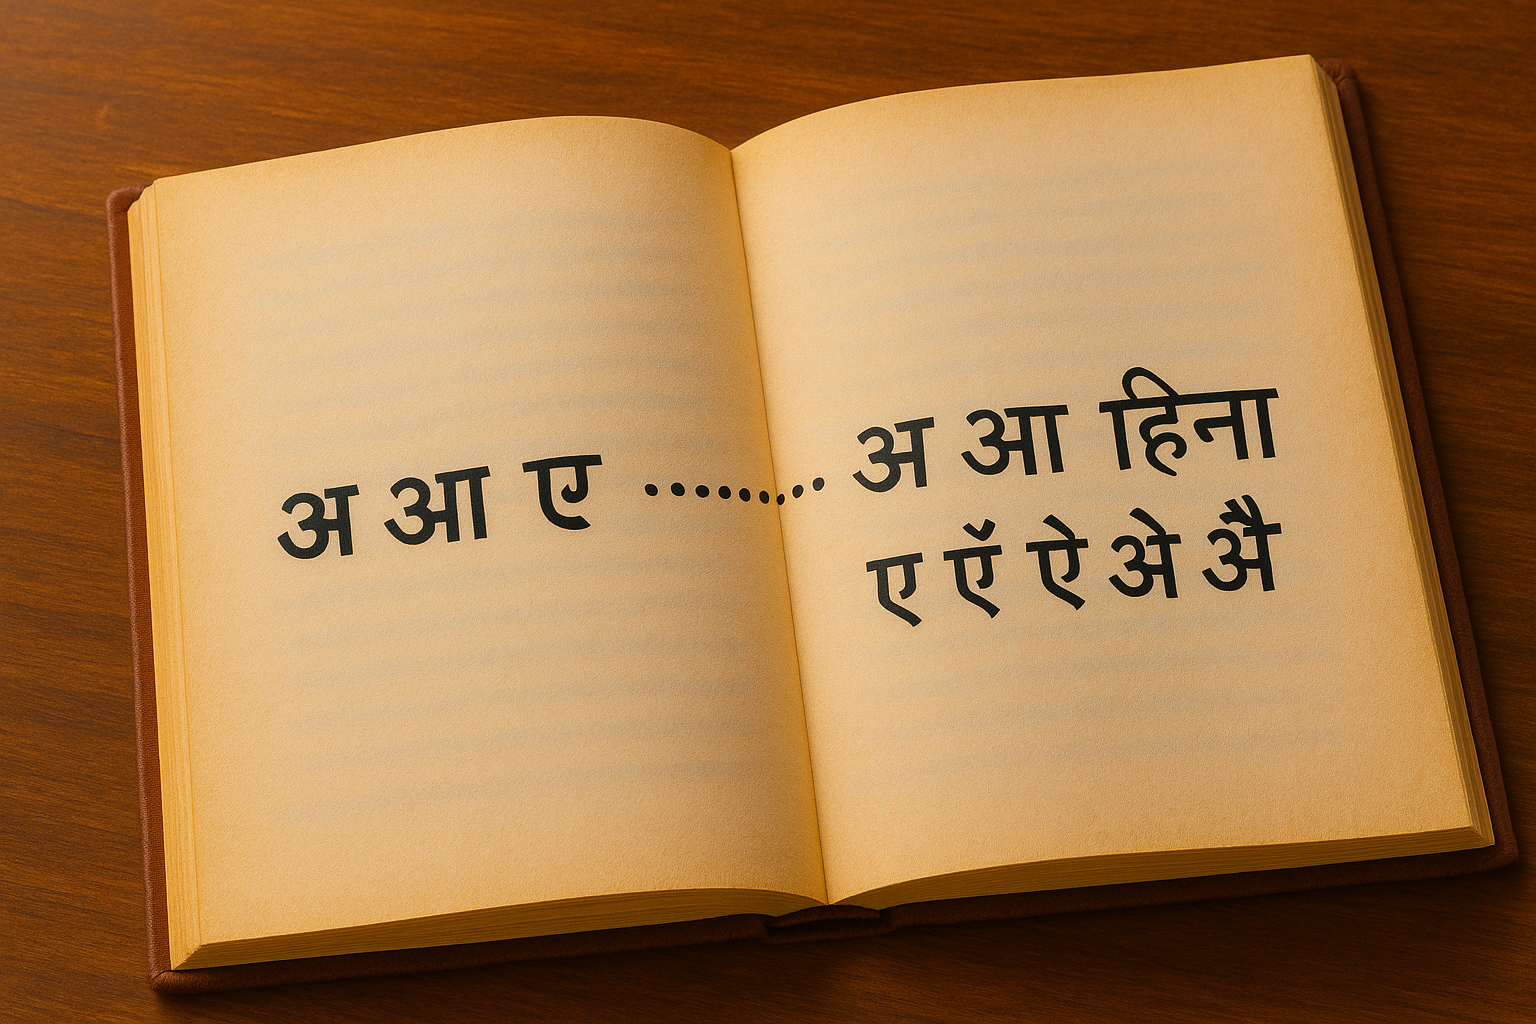 अ आ ए .........
अ आ हिना
ए ऍ ऐ अे अै